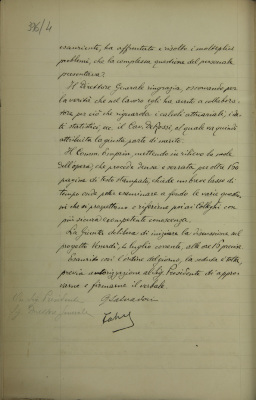 386/4
esauriente, ha affrontato e risolto i molteplici
problemi, che la complessa questione del personale
presentava.
Il Direttore Generale ringrazia, osservando per
la verità che nel lavoro egli ha avuto a collabora-
tore per ciò che riguarda i calcoli attuariali, i da-
ti statistici, ecc. il Cav. De Rossi, al quale va quindi
attribuita la giusta parte di merito.
Il Comm. mettendo in rilievo la mole
dell'opera, che procede densa e serrata per oltre
pagine di testo stampato, chiede un breve lasso di
tempo onde poter esaminare a fondo le varie questio-
ni che si progettano e riferirne poi ai Colleghi con
più sicura e competente conoscenza.
La Giunta delibera di iniziare la discussione sul
progetto Venerdì, luglio corrente, alle ore 15 precise.
Esaurito così l'ordine del giorno, la seduta è tolta,
previa autorizzazione al Sig. Presidente di appro-
varne e firmarne il verbale.